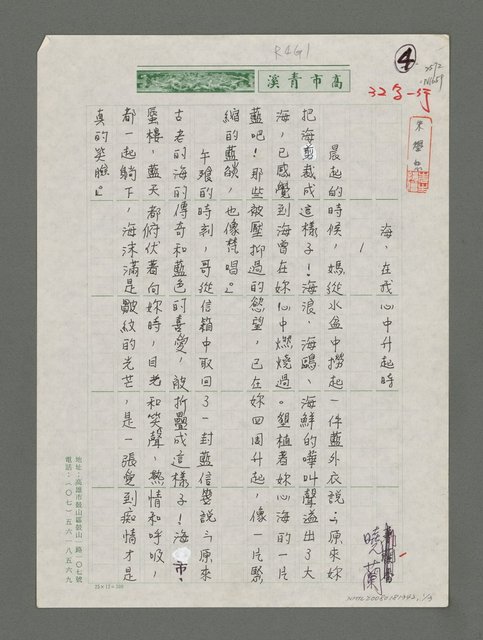 R4G1
④
32字一行
高市青溪
海,在我心中升起時
曉蘭
1
晨起的時候,媽從水盆中撈起一件藍外衣說:「原來妳
把海剪裁成這樣子!海浪、海鷗、海鮮的嘩叫聲溢出了大
海,已感覺到海曾在妳心中燃燒過。墾植着妳心海的一片
藍吧!那些被壓抑過的慾望,已在妳四周升起,像一片緊
縮的藍皺,也像梵唱。」
午飯的時刻,哥從信箱中取回了一封藍信箋說:「原來
古老的海的傳奇和藍色的喜愛,被折疊成這樣子!海市,
蜃樓,藍天都俯伏著向妳時,目光和笑聲,熱情和呼吸,
都一起躺下,海沫滿是皺紋的光芒,是一張愛到痴情才是
真的笑臉。」
地址:高雄市鼓山區鼓山一路一○七號
電話:(○七)五六一八五六九
25×12=300
NMTL20050181943, 1/3